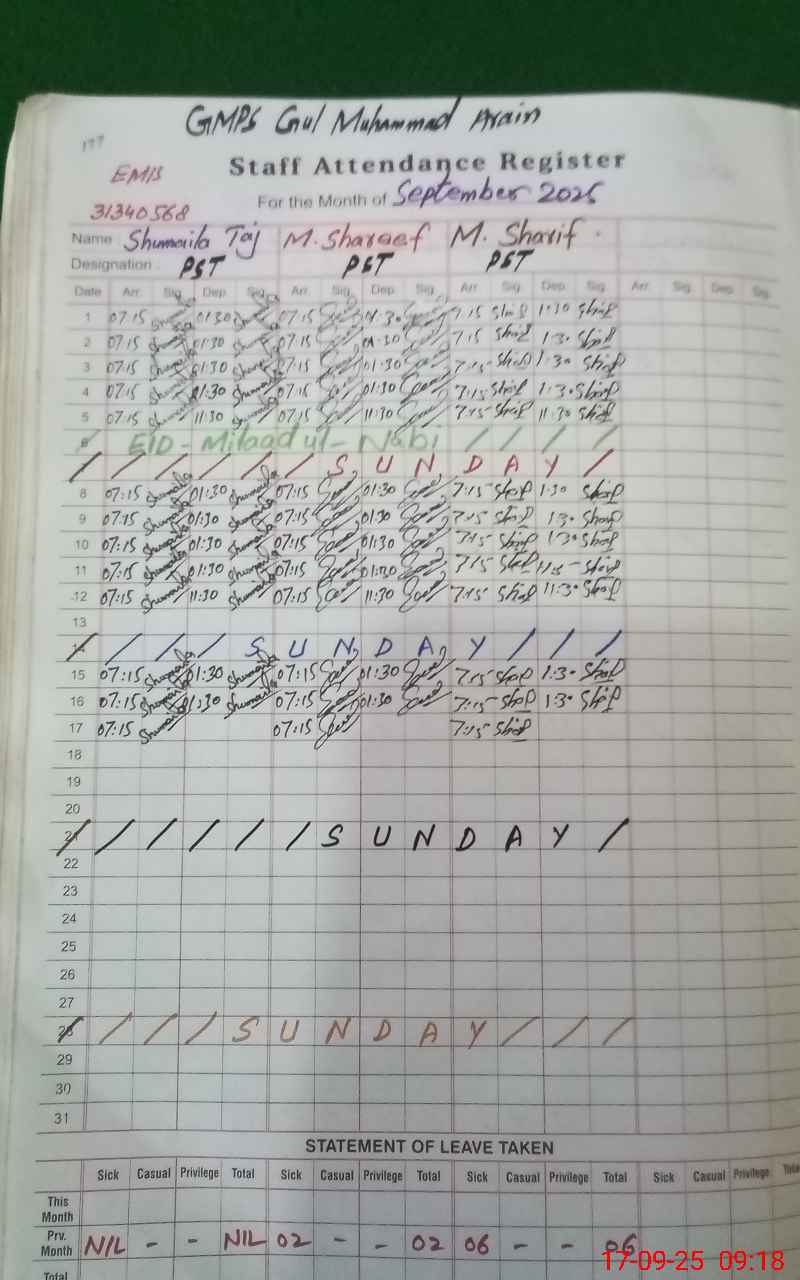 177
GMPS Gul Muhammad Arain
EMIS
Staff Attendance Register
31340568
For the Month of September 2025
Name Shumaila Taj M. Shareef M. Sharif
Designation PST PST PST
Date Arr. Sig. Dep. Sig. Arr. Sig. Dep. Sig. Arr. Sig. Dep. Sig. Arr. Sig. Dep. Sig.
1 07:15 01:30 07:15 01:30 7:15 Sharif 1:30 Sharif
2 07:15 Shumaila 01:30 Shumaila 07:15 01:30 7:15 Sharif 1:30 Sharif
3 07:15 Shumaila 01:30 Shumaila 07:15 01:30 7:15 Sharif 1:30 Sharif
4 07:15 Shumaila 01:30 Shumaila 07:15 01:30 7:15 Sharif 1:30 Sharif
5 07:15 Shumaila 11:30 Shumaila 07:15 11:30 7:15 Sharif 11:30 Sharif
6 / EID - Milaad ul - Nabi / / / /
/ / / / / / S U N D A Y /
8 07:15 Shumaila 01:30 Shumaila 07:15 01:30 7:15 Sharif 1:30 Sharif
9 07:15 Shumaila 01:30 Shumaila 07:15 01:30 7:15 Sharif 1:30 Sharif
10 07:15 Shumaila 01:30 Shumaila 07:15 01:30 7:15 Sharif 1:30 Sharif
11 07:15 Shumaila 01:30 Shumaila 07:15 01:30 7:15 Sharif Sharif
12 07:15 Shumaila 11:30 Shumaila 07:15 11:30 7:15 Sharif 11:30 Sharif
13
14 / / / S U N D A Y / / /
15 07:15 Shumaila 01:30 Shumaila 07:15 01:30 7:15 Sharif 1:30 Sharif
16 07:15 Shumaila 01:30 Shumaila 07:15 01:30 7:15 Sharif 1:30 Sharif
17 07:15 Shumaila 07:15 7:15 Sharif
18
19
20
21 / / / / / S U N D A Y /
22
23
24
25
26
27
28 / / / S U N D A Y / / /
29
30
31
STATEMENT OF LEAVE TAKEN
Sick Casual Privilege Total Sick Casual Privilege Total Sick Casual Privilege Total Sick Casual Privilege Total
This Month
Prv. Month NIL - - NIL 02 - - 02 06 - - 06
Total
17-09-25 09:18